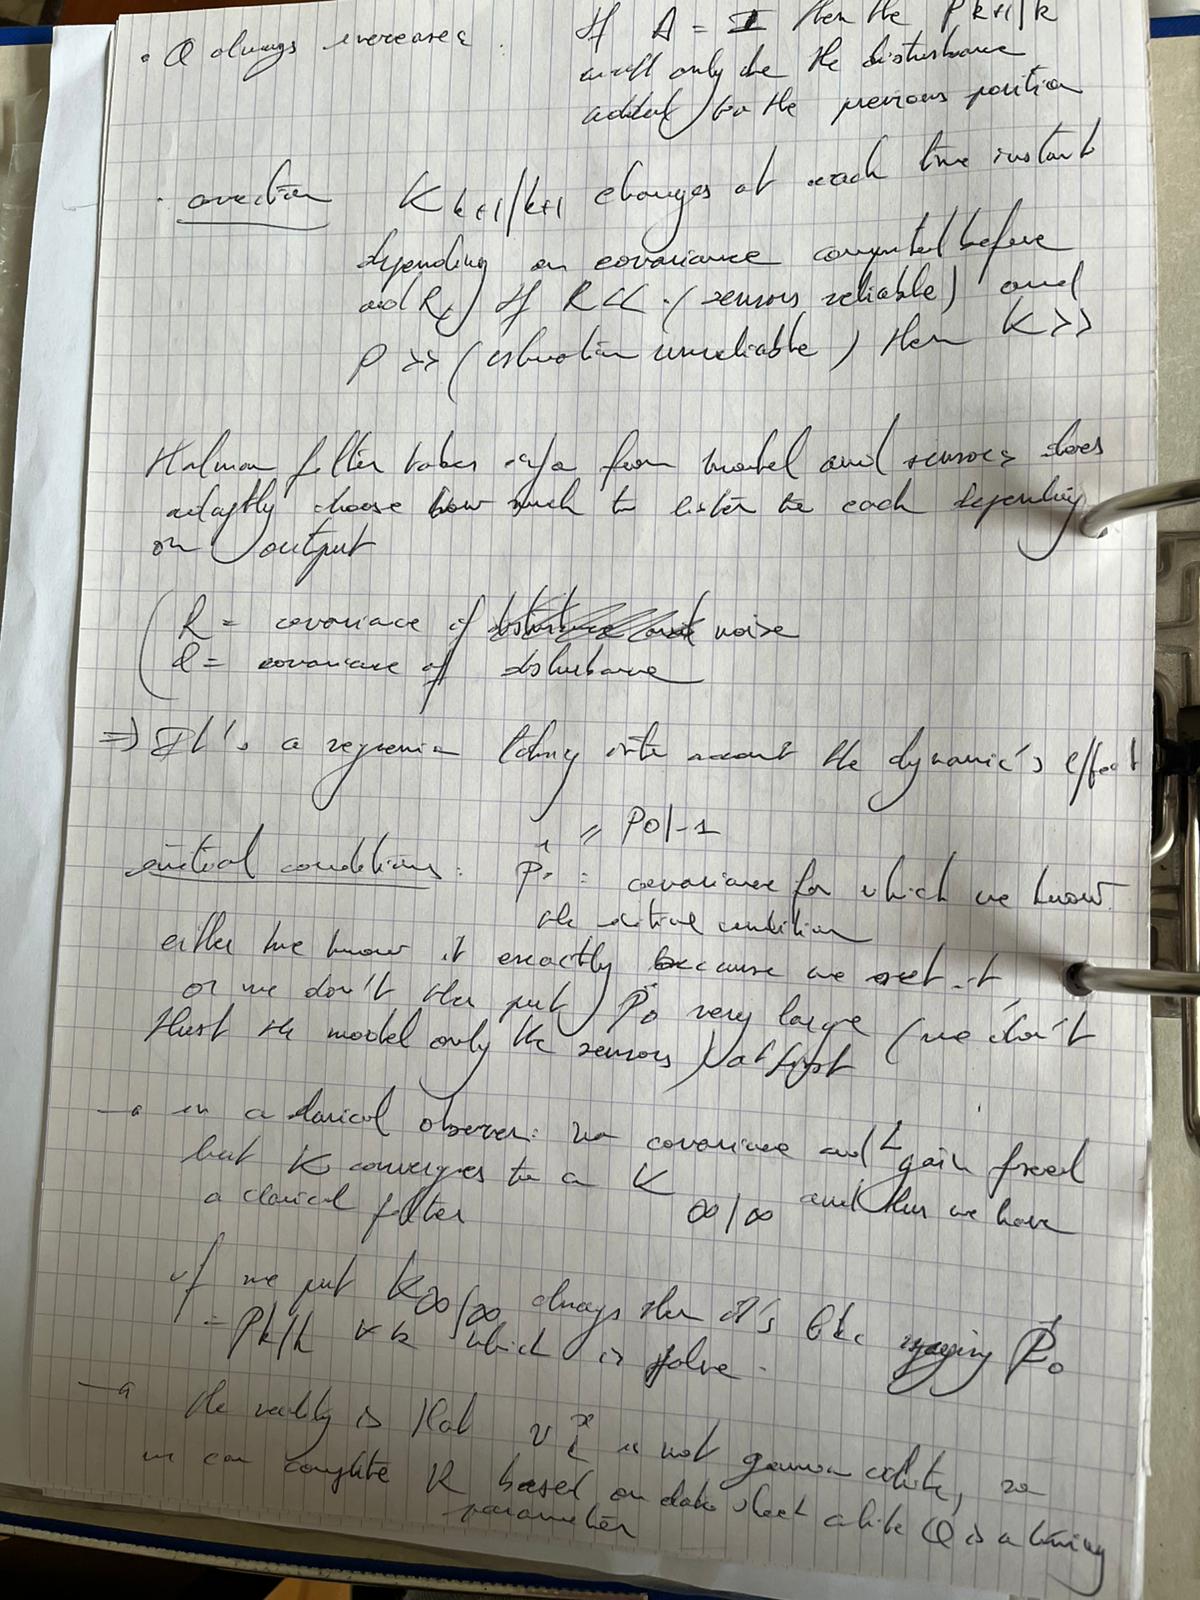 If A = I then the Pk+1/k
• Q always increases : will only be the disturbance
added to the previous position
• correction K k+1/k+1 changes at each time instant
depending on covariance computed before
and R, If R << (sensors reliable) and
P >> (estimation unreliable) then K >>
Kalman filter takes info from model and sensors does
adaptly choose how much to listen to each depending
on output
R = covariance of noise
Q = covariance of disturbance
=> It's a regression taking into account the dynamic's effect
= P0|-1
initial conditions : P0 = covariance for which we know
the initial condition
either we know it exactly because we set it
or we don't then put P0 very large (we don't
trust the model only the sensors) at first
→ in a classical observer: no covariance and L gain fixed
but K converges to a K ∞/∞ and thus we have
a classical filter
if we put K∞/∞ always then it's like saying P0
= Pk/k ∀k which is false.
→ the reality is that v is not gaussian white, so
we can complete R based on data sheet while Q is a tuning
parameter